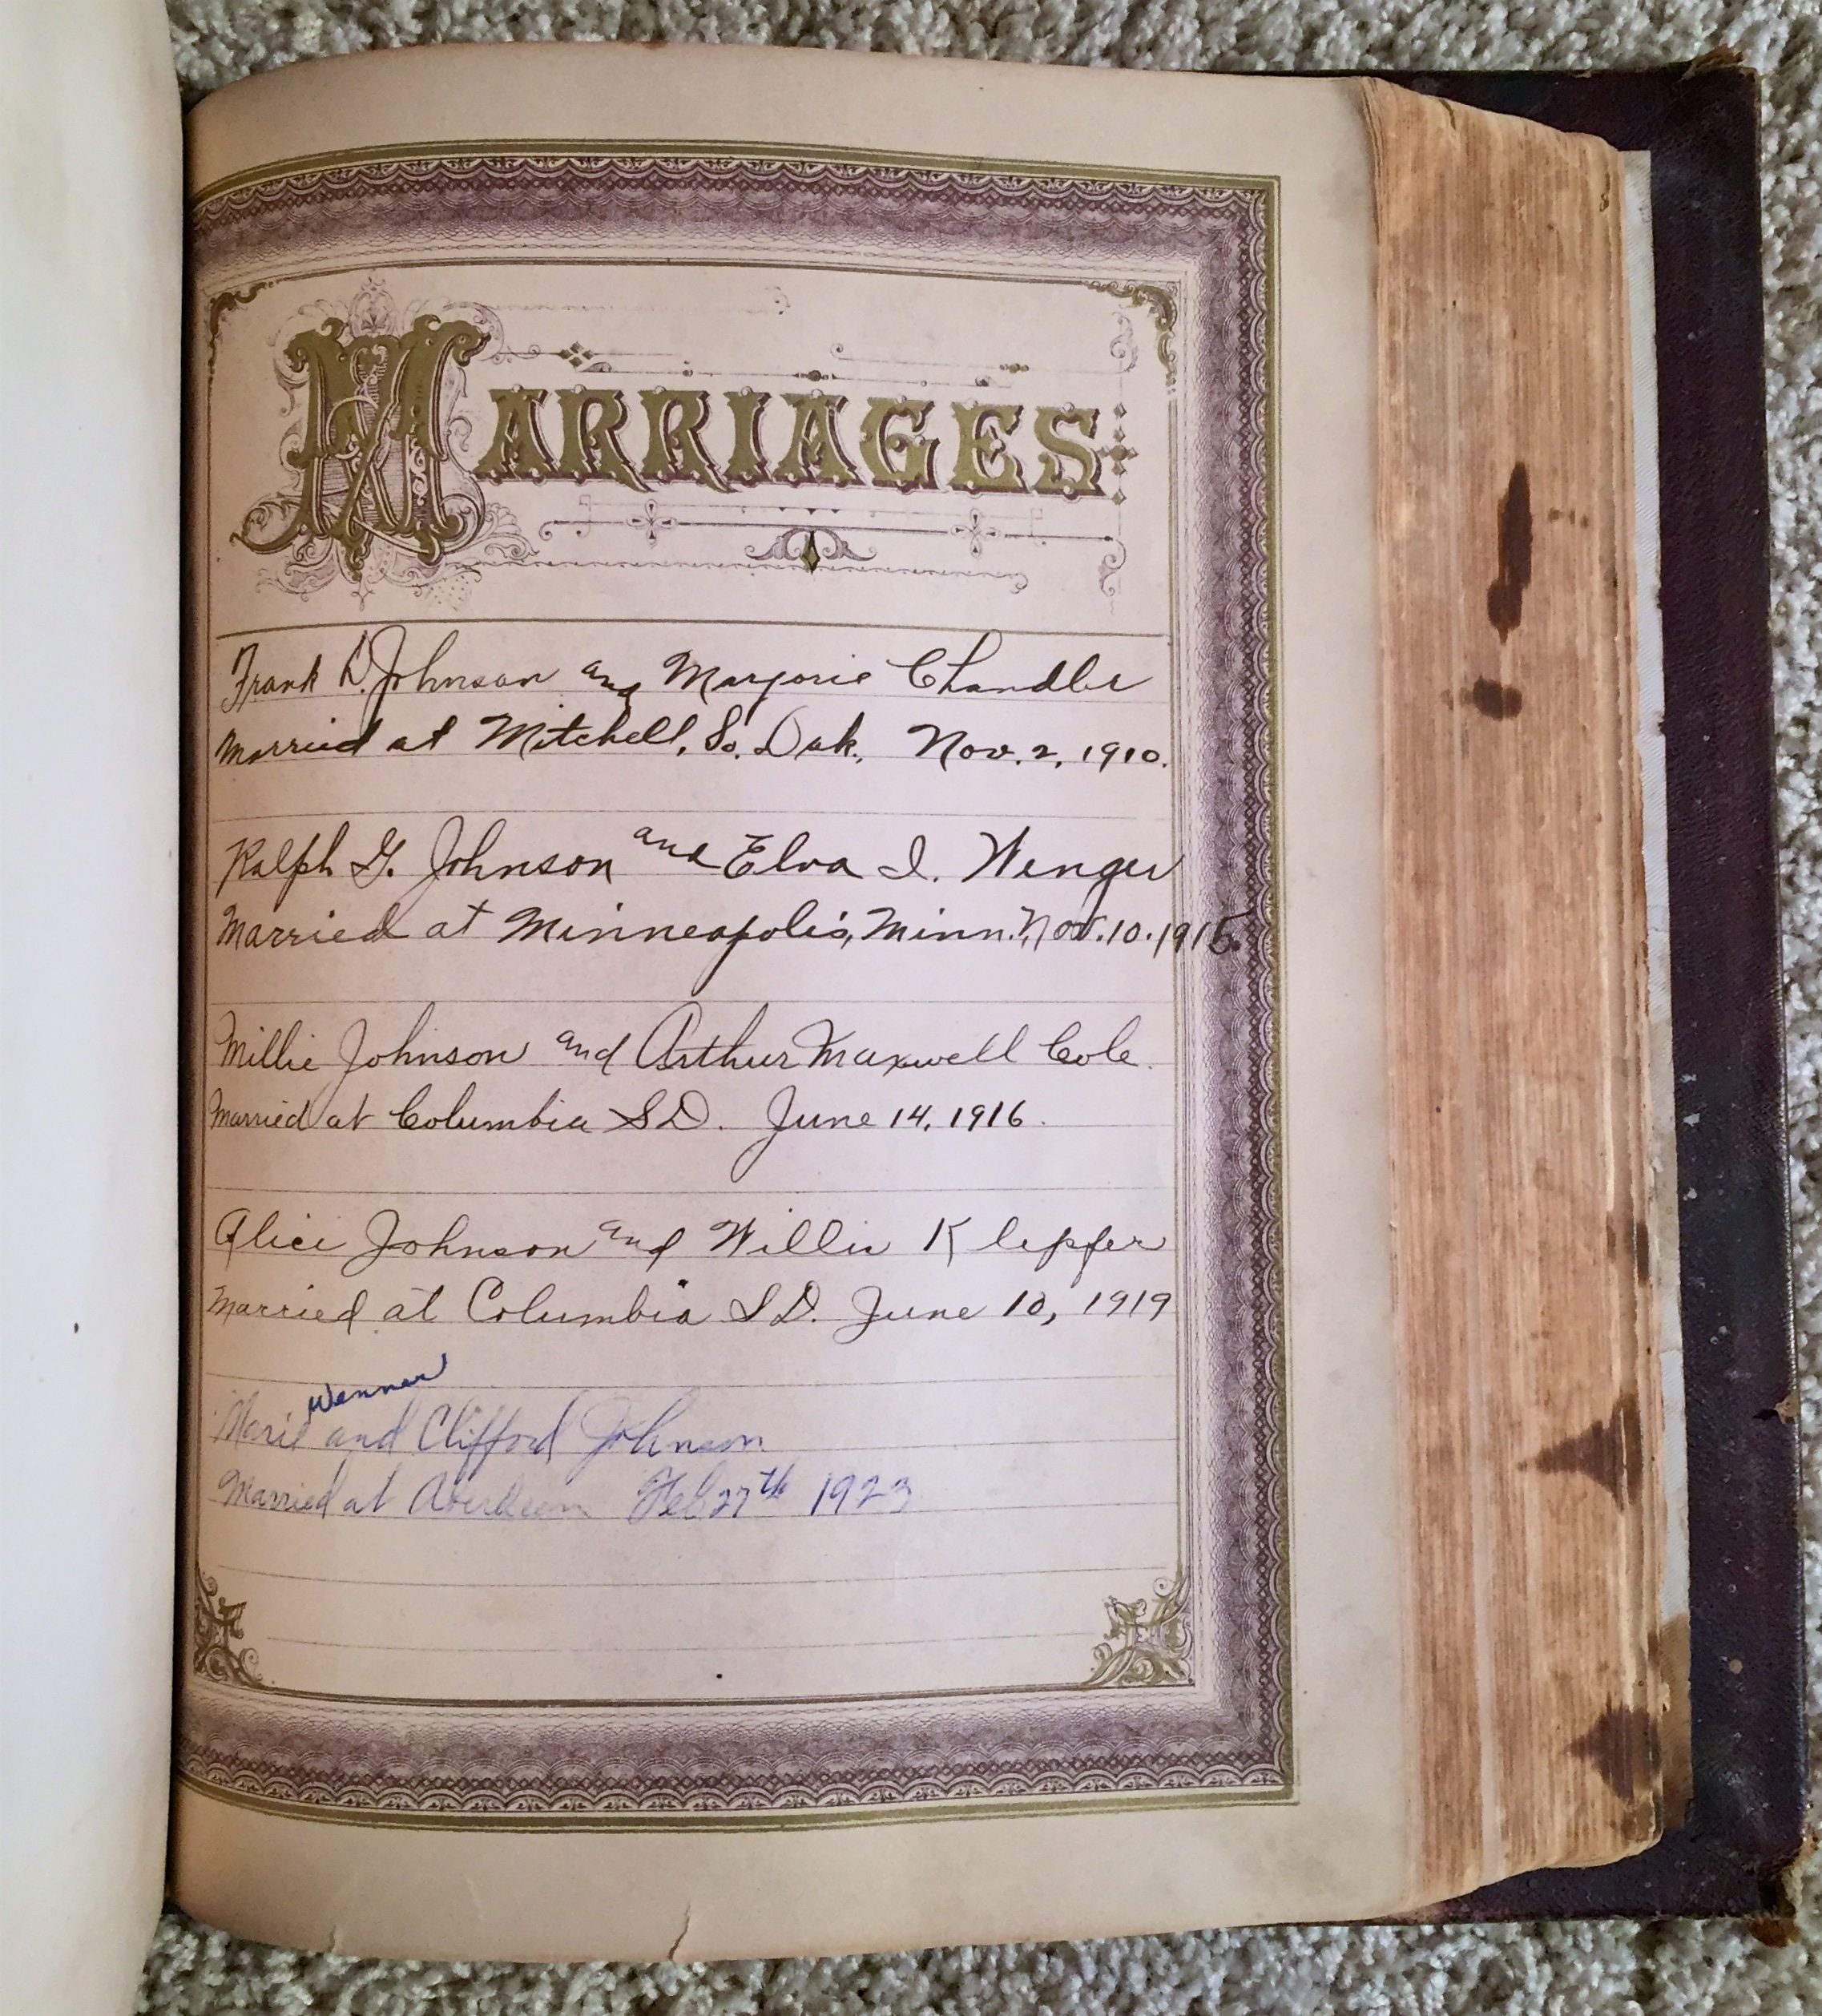 MARRIAGES
Frank D. Johnson and Marjorie Chandler
Married at Mitchell, So. Dak. Nov. 2, 1910.
Ralph G. Johnson and Elva I. Wenger
Married at Minneapolis, Minn. Nov. 10. 1915.
Millie Johnson and Arthur Maxwell Cole.
Married at Columbia SD. June 14, 1916.
Alice Johnson and Willis Klepfer
Married at Columbia S.D. June 10, 1919
Wenner
Marie and Clifford Johnson
Married at Aberdeen Feb 27th 1923